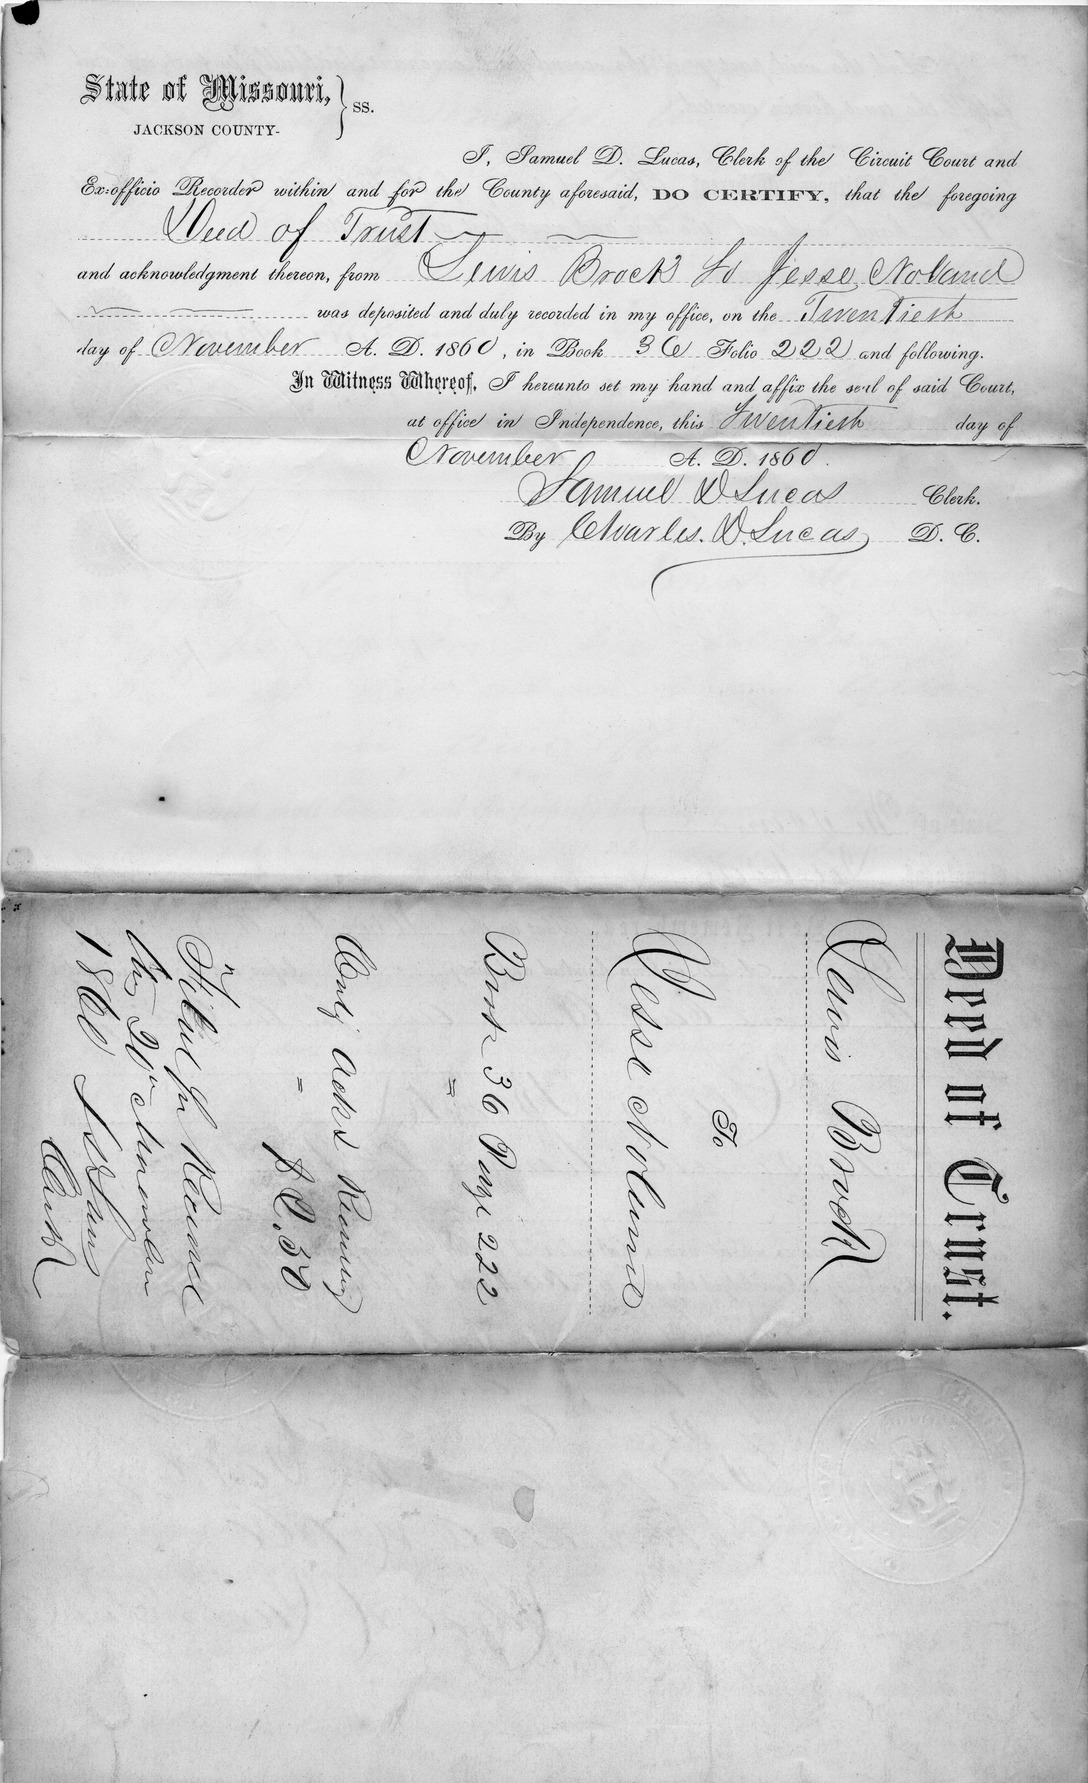 State of Missouri, } ss.
JACKSON COUNTY-
I, Samuel D. Lucas, Clerk of the Circuit Court and
Ex-officio Recorder within and for the County aforesaid, DO CERTIFY, that the foregoing
Deed of Trust
and acknowledgment thereon, from Lewis Brock to Jesse Noland
was deposited and duly recorded in my office, on the Twentieth
day of November A. D. 1860, in Book 36 Folio 222 and following.
In Witness Whereof, I hereunto set my hand and affix the seal of said Court,
at office in Independence, this Twentieth day of
November A. D. 1860.
Samuel D Lucas Clerk.
By Charles. D. Lucas, D. C.
Deed of Trust.
Lewis Brock
To
Jesse Noland
Book 36 Page 222
=
Only
=
Filed for Record
20th
1860
Clerk